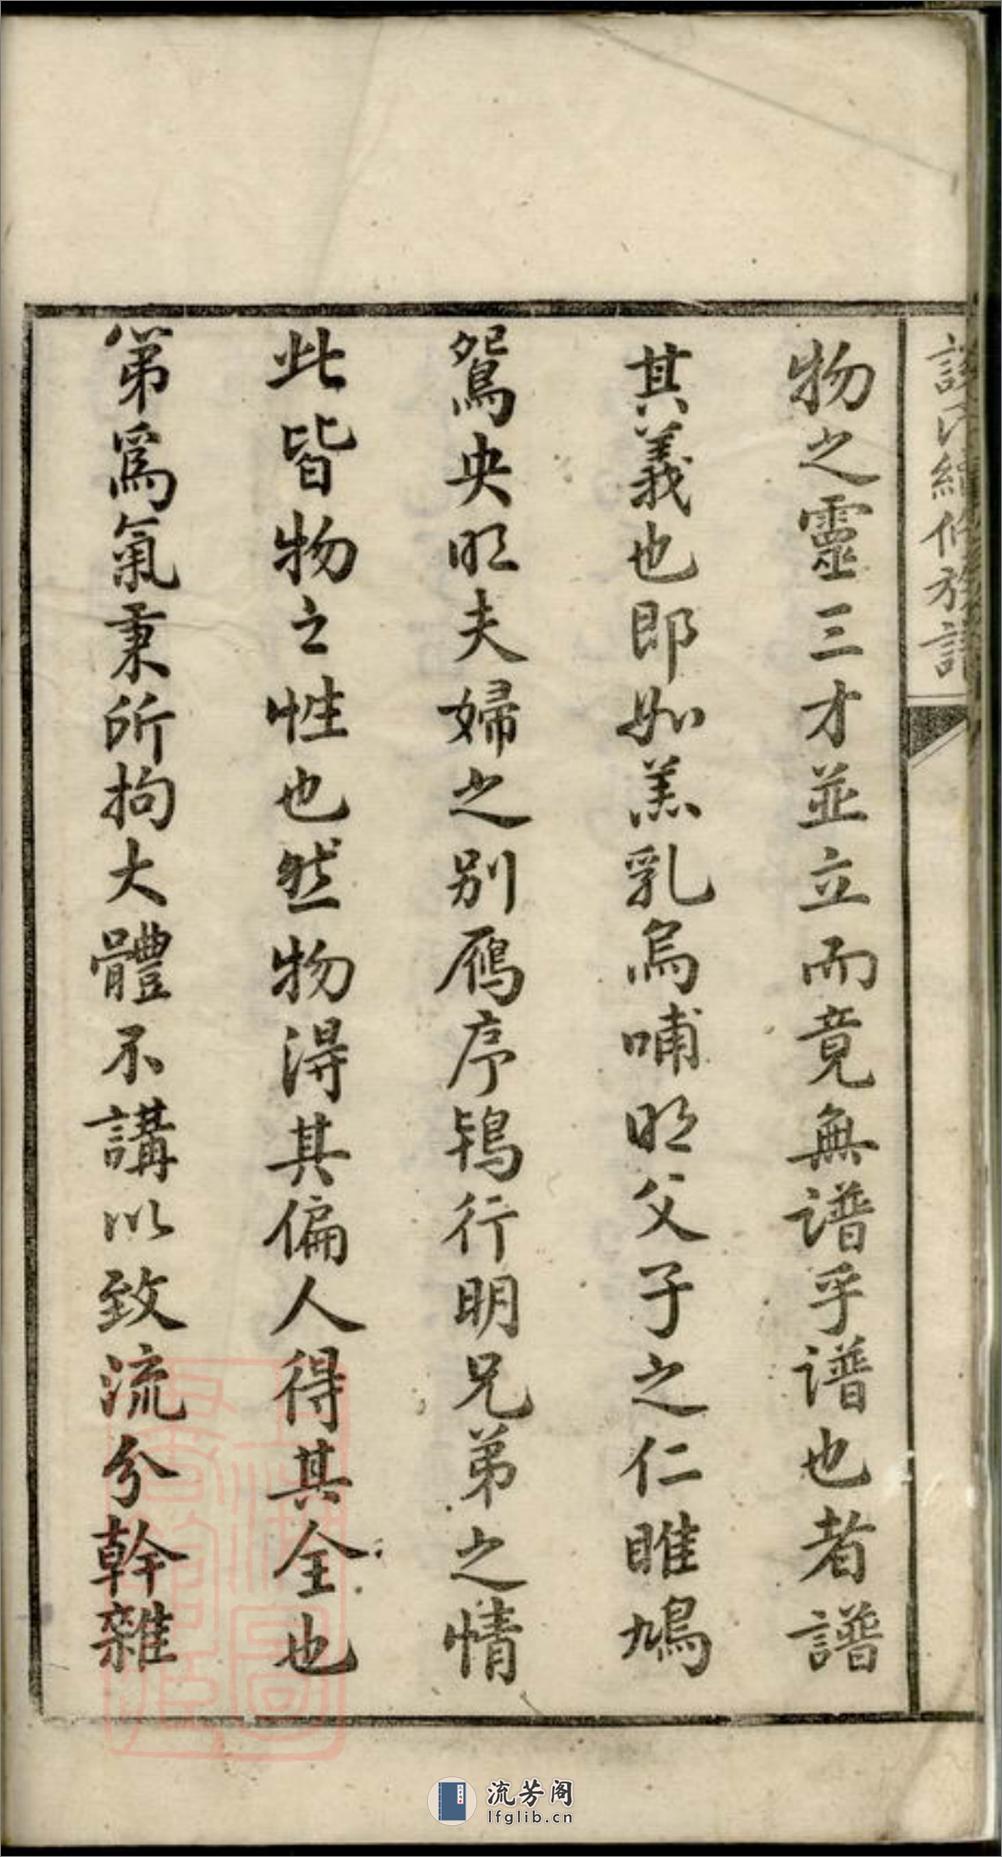 物之靈三才並立而竟無譜乎譜也者譜
其義也即如羔乳烏哺明父子之仁睢鳩
鴛央明夫婦之别鴈序鴇行明兄弟之情
此皆物之性也然物淂其偏人得其全也
第爲氣秉所拘大體不講以致流分幹雜
氏續修族譜
流芳阁
lfglib.cn